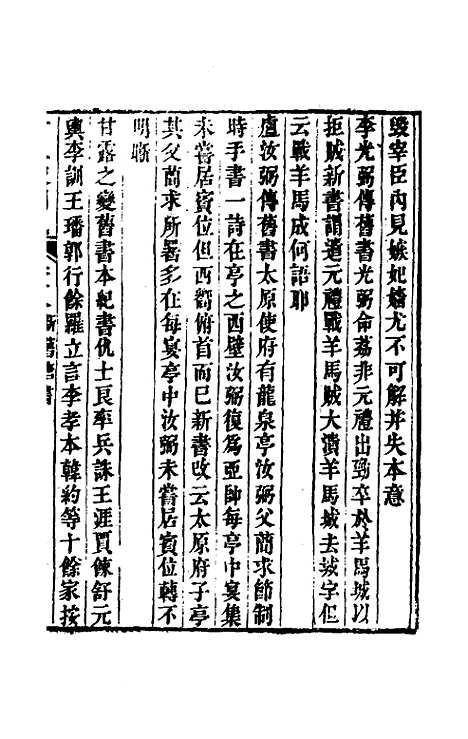 毀宰臣內見嫉妃嬙尤不可解并失本意
李光弼傳舊書光弼命荔非元禮出勁卒於羊馬城以
拒賊新書謂遣元禮戰羊馬賊大潰羊馬城去城字但
云戰羊馬成何語耶
盧汝弼傳舊書太原使府有龍泉亭汝弼父蕑求節制
時手書一詩在亭之西壁汝弼復爲亞帥每亭中宴集
未嘗居賓位但西嚮俯首而已新書改云太原府子亭
其父蕑求所署多在每宴亭中汝弼未嘗居賓位轉不
明晰
甘露之變舊書本紀書仇士良率兵誅王涯賈餗舒元
輿李訓王璠郭行餘羅立言李孝本韓約等十餘家按
新舊唐書